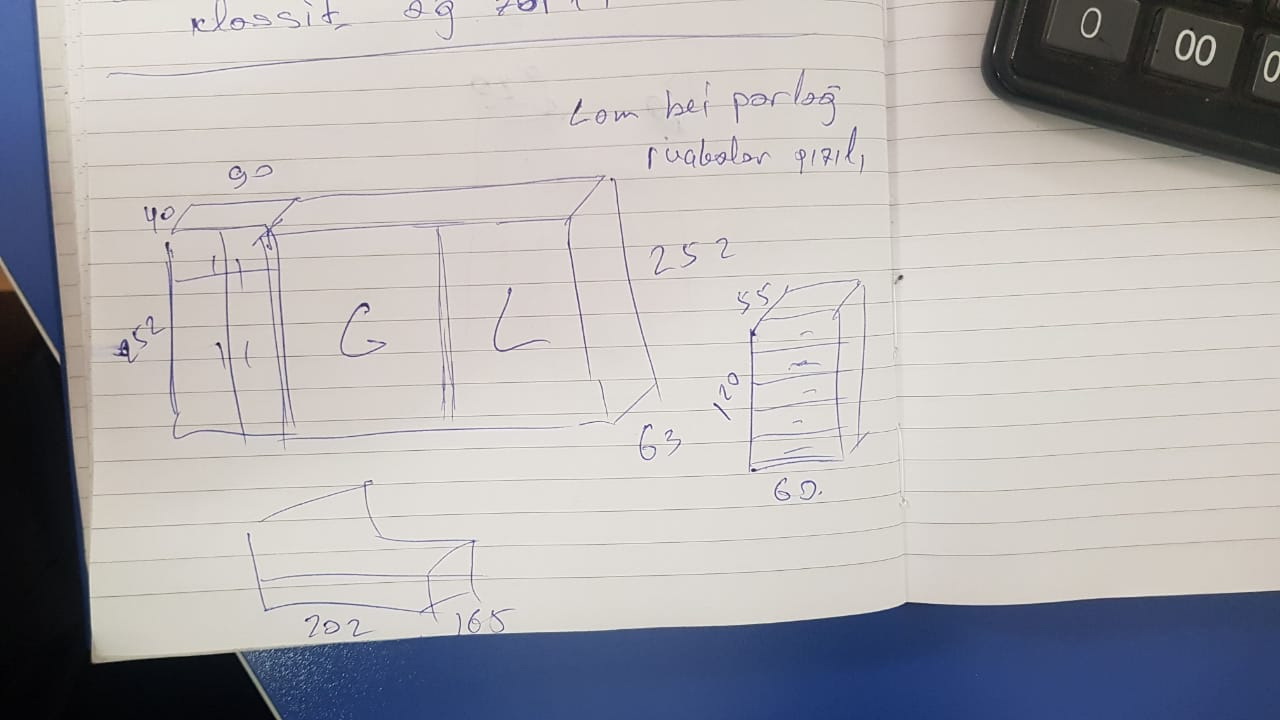 klassik ag
Lom bej parlağ
ruçkalar qızılı
90
40
252
G L
252
63
55
120
60.
202 165
0 00 0